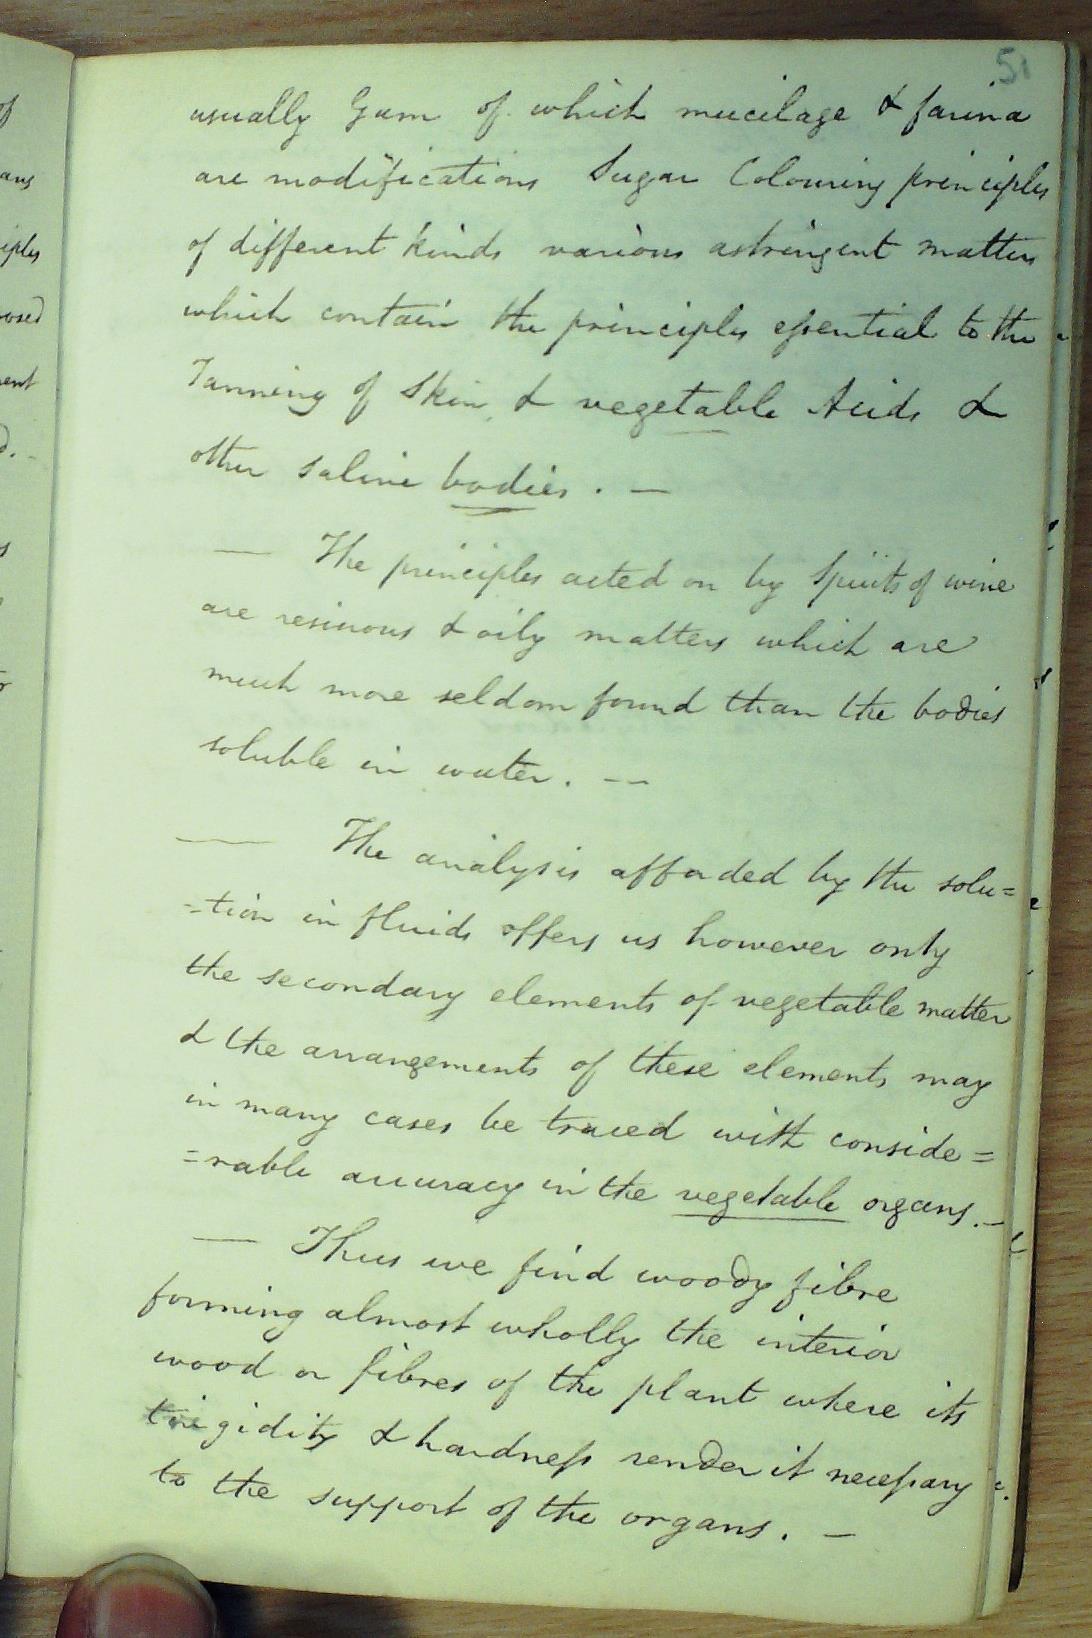 51
usually Gum of which mucilage & farina
are modifications Sugar Colouring principles
of different kinds various astringent matters
which contain the principles essential to the
Tanning of Skin, & vegetable Acids &
other saline bodies. —
— The principles acted on by Spirits of wine
are resinous & oily matters which are
much more seldom found than the bodies
soluble in water. —
— The analysis afforded by the solu=
=tion in fluids offers us however only
the secondary elements of vegetable matter
& the arrangements of these elements may
in many cases be traced with conside=
=rable accuracy in the vegetable organs. —
— Thus we find woody fibre
forming almost wholly the interior
wood or fibres of the plant where its
rigidity & hardness render it necessary
to the support of the organs. —